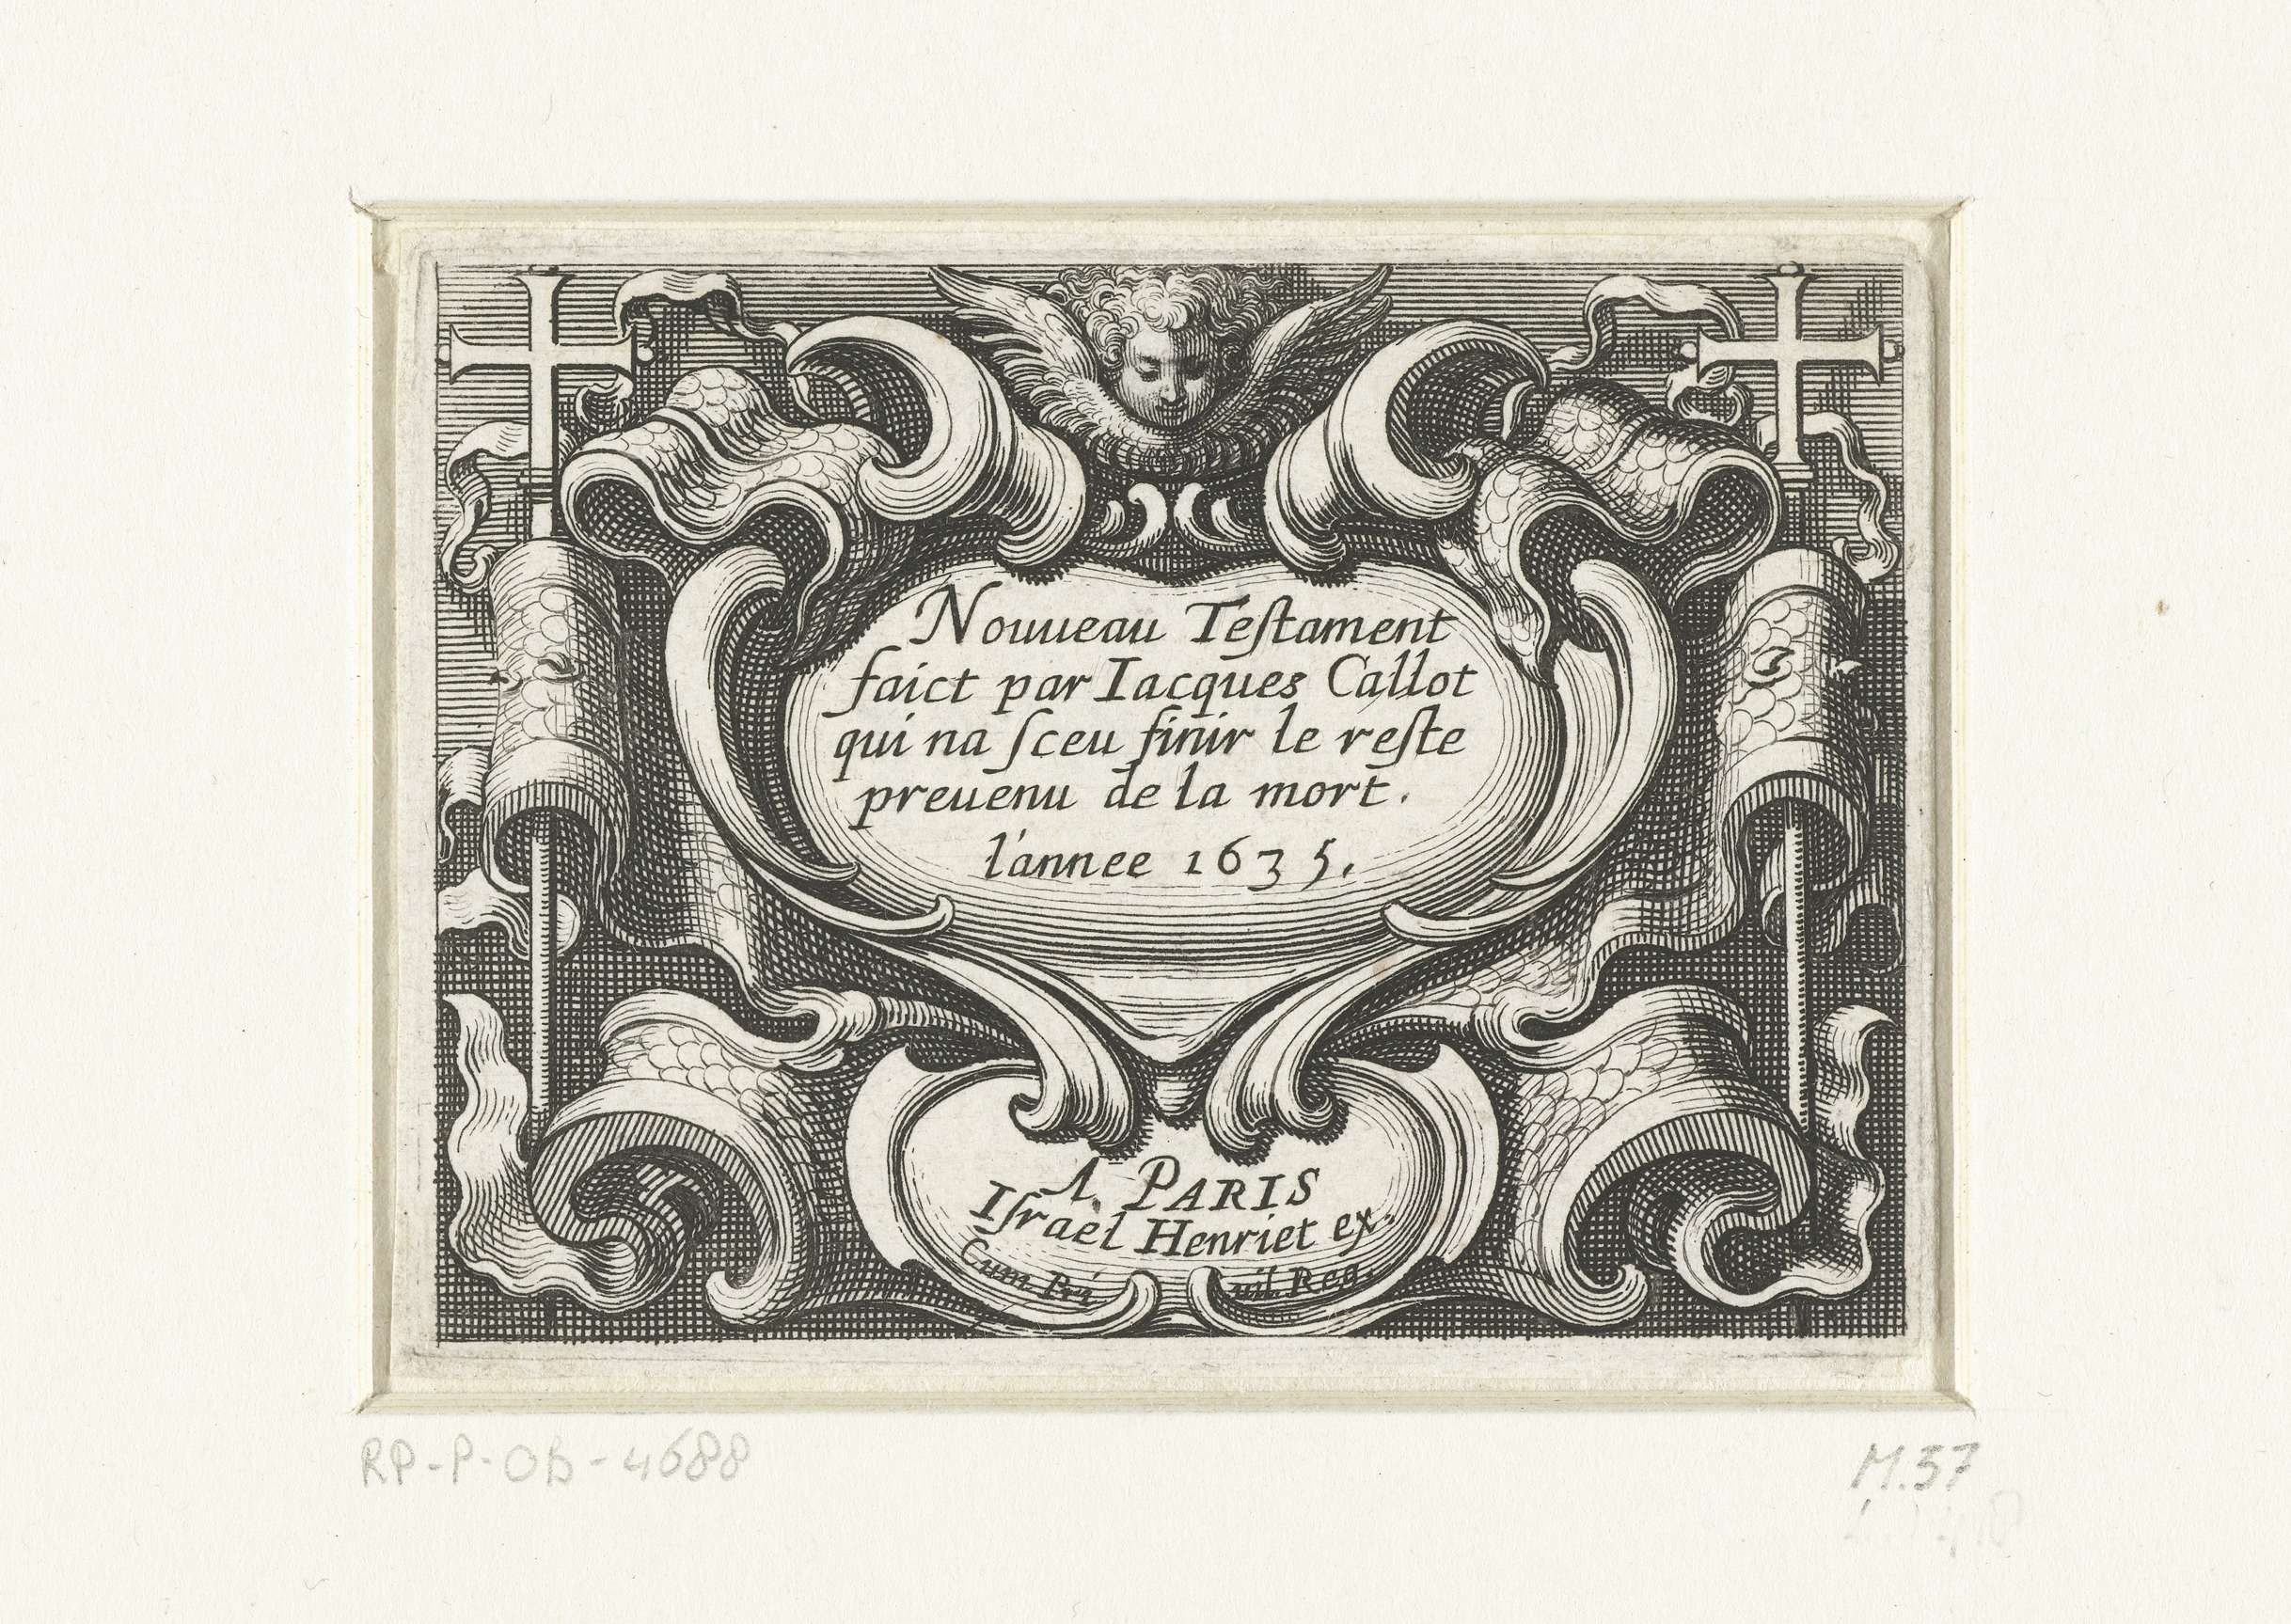 Nouueau Teſtament
faict par Iacques Callot
qui na ſceu finir le reſte
preuenu de la mort.
l'annee 1635.
A PARIS
Iſraël Henriet ex.
Cum Pri uil. Reg.
RP-P-OB-4688
M.37